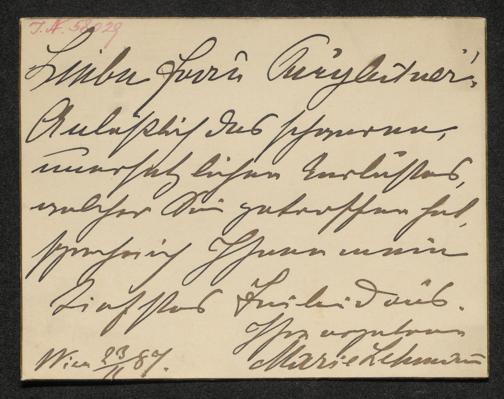 I.N. 58029
Liebe Frau Türgleitner!
Anläßlich des schweren,
unersetzlichen Verlustes,
welcher Sie getroffen hat,
spreche ich Ihnen mein
tiefstes Beileid aus.
Ihre ergebene
Wien 23/11 87. Marie Lehmann